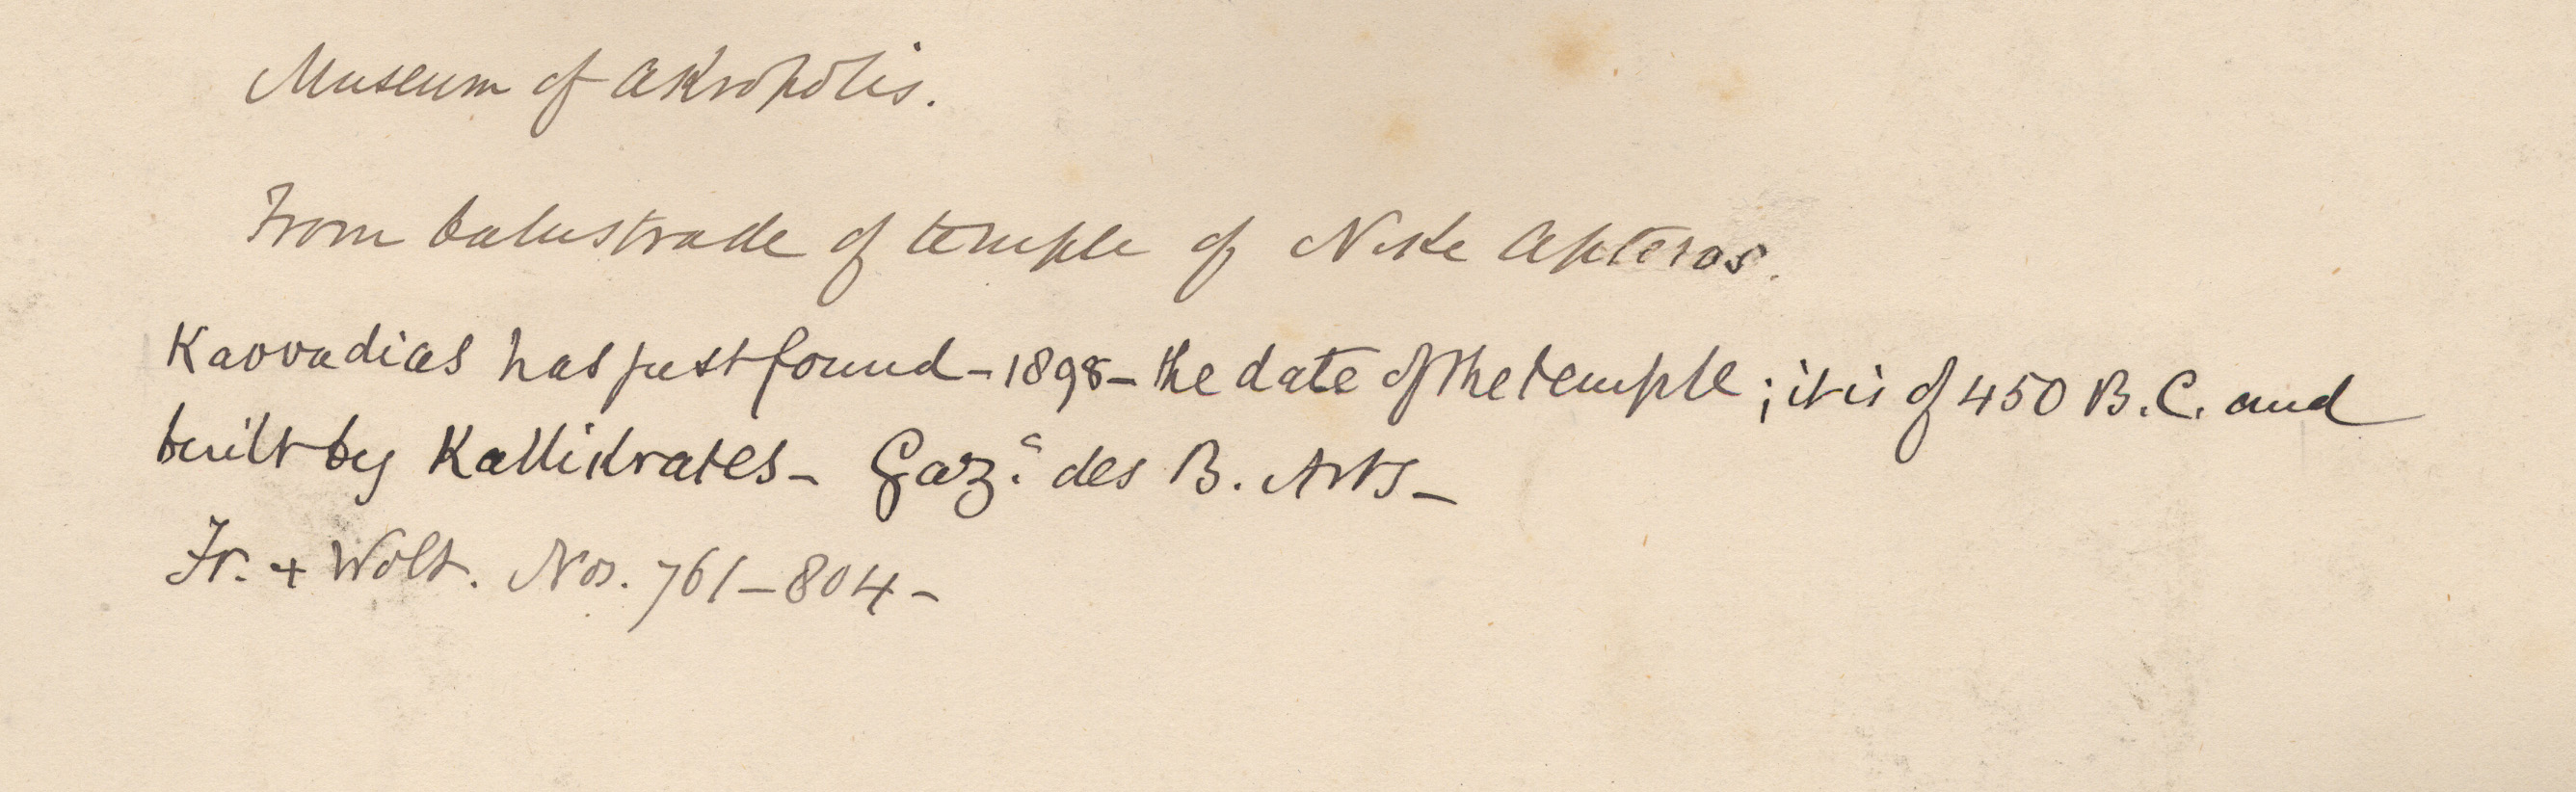 Museum of Akropolis.
From balustrade of temple of Nike Apteros.
Kavvadias has just found - 1898 - the date of the temple ; it is of 450 B.C. and
built by Kallikrates - Gaz. des B. Arts -
Fr. + Wolt. Nos. 761-804-